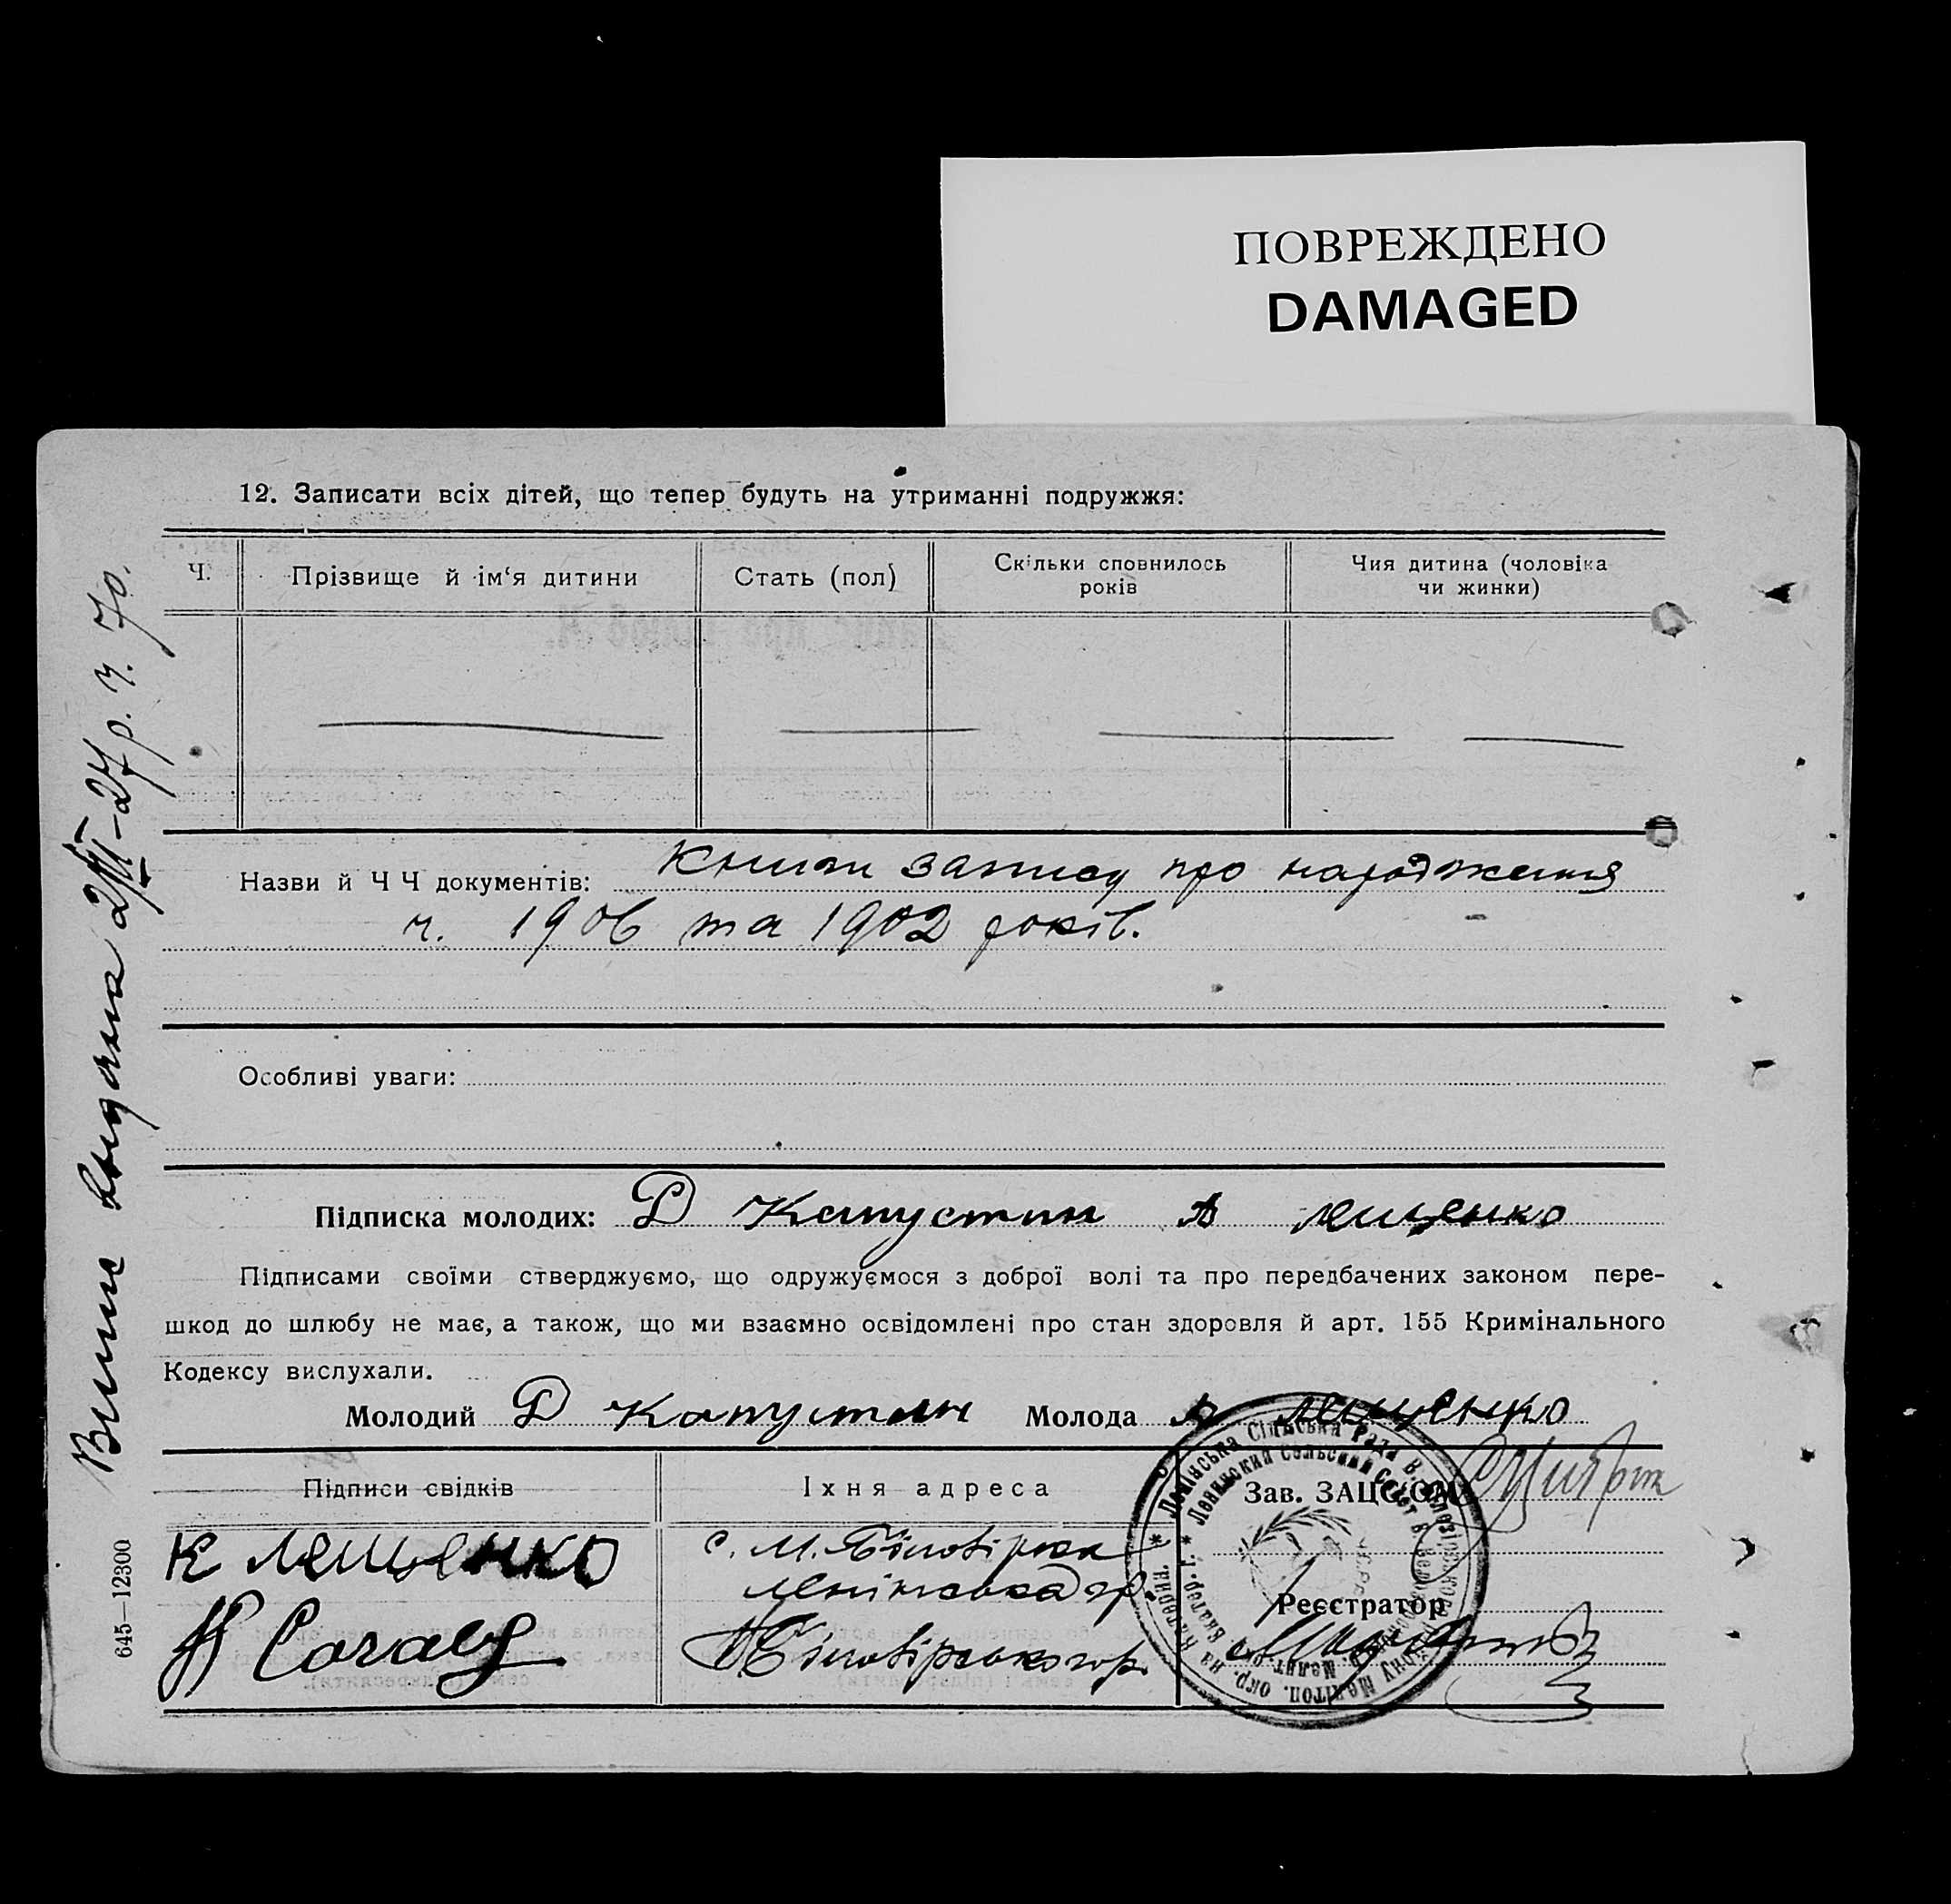 ПОВРЕЖДЕНО
DAMAGED
12. Записати всіх дітей, що тепер будуть на утриманні подружжя:
Ч.
Прізвище й ім‘я дитини
Стать (пол)
Скільки сповнилось
років
Чия дитина (чоловіка
чи жинки)
Назви й Ч Ч документів: Книги запису про народження
ч. 1906 та 1902 років.
Особливі уваги:
Підписка молодих: Д Капустин А Лещенко
Підписами своїми стверджуємо, що одружуємося з доброї волі та про передбачених законом пере-
шкод до шлюбу не має, а також, що ми взаємно освідомлені про стан здоровля й арт. 155 Кримінального
Кодексу вислухали.
Молодий Д Капустин Молода А Лещенко
Підписи свідків
Іхня адреса
Зав. ЗАЦС'ОМ
К Лещенко
с. М. Білозірка
Ленінська
Реєстратор
Білозірського р.
Ленінська Сільська Рада
Ленинский Сельский Совет
Випис видана 2/III-27 р. ч. 70.
645—12300